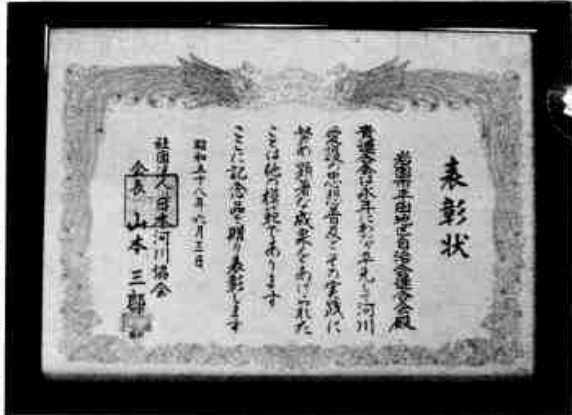 表彰状
岩国市平田地区自治会連合会殿
貴連合会は永年にわたり率先して河川
愛護の思想普及とその実践に
努め顕著な成果をあげられた
ことは他の模範であります
ここに記念品を贈り表彰します
昭和五十八年六月三日
社団法人日本河川協会
会長 山本三郎